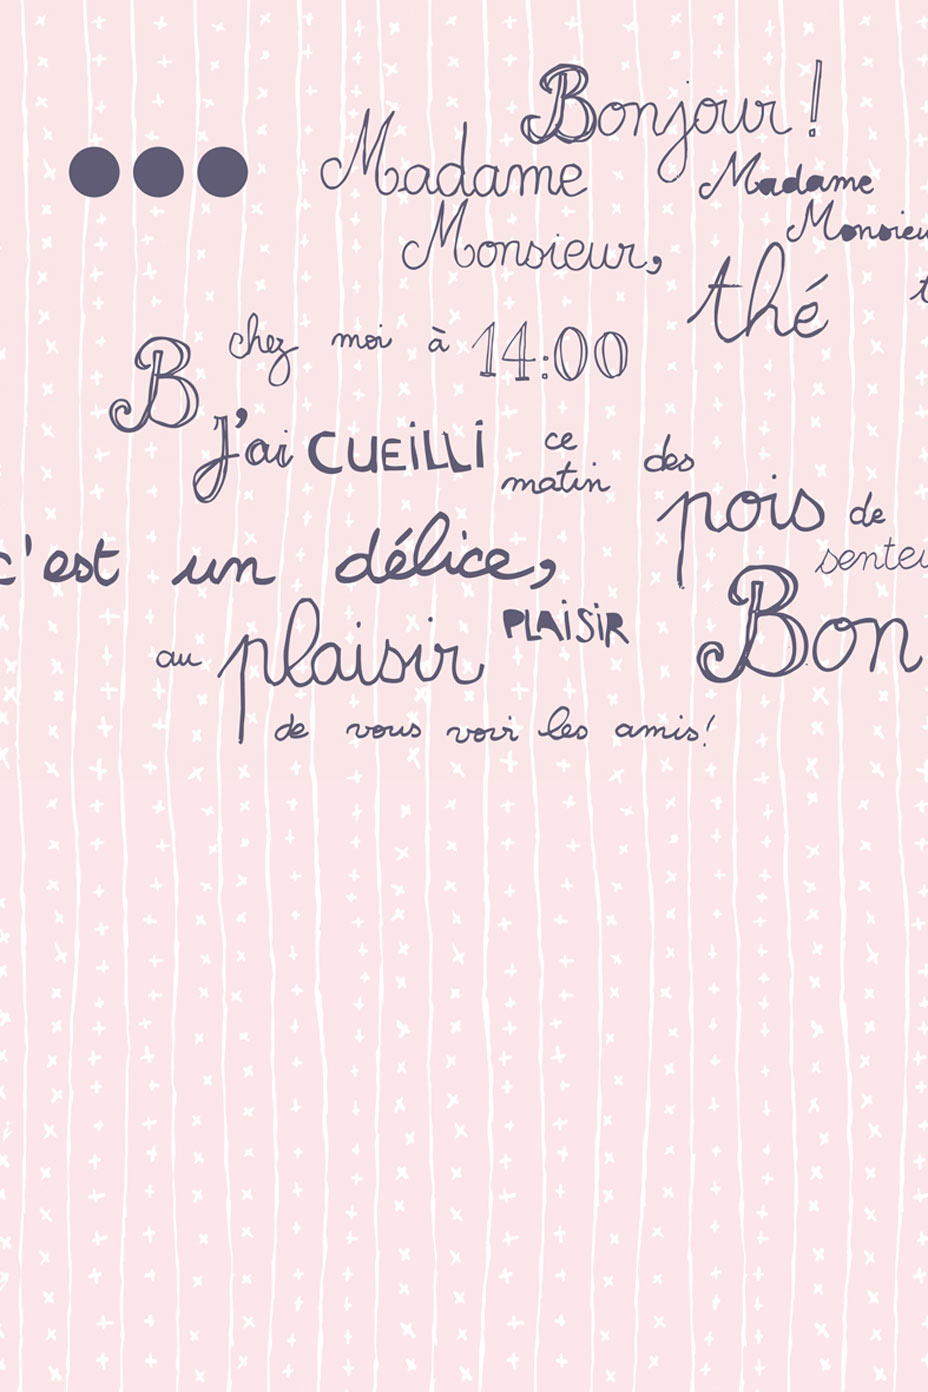 Bonjour!
Madame Madame
Monsieur, Monsieu
thé t
chez moi à 14:00
B
J'ai CUEiLLi ce matin des
pois de
senteu
c'est un délice,
au plaisir PLAiSiR Bon
de vous voir les amis!